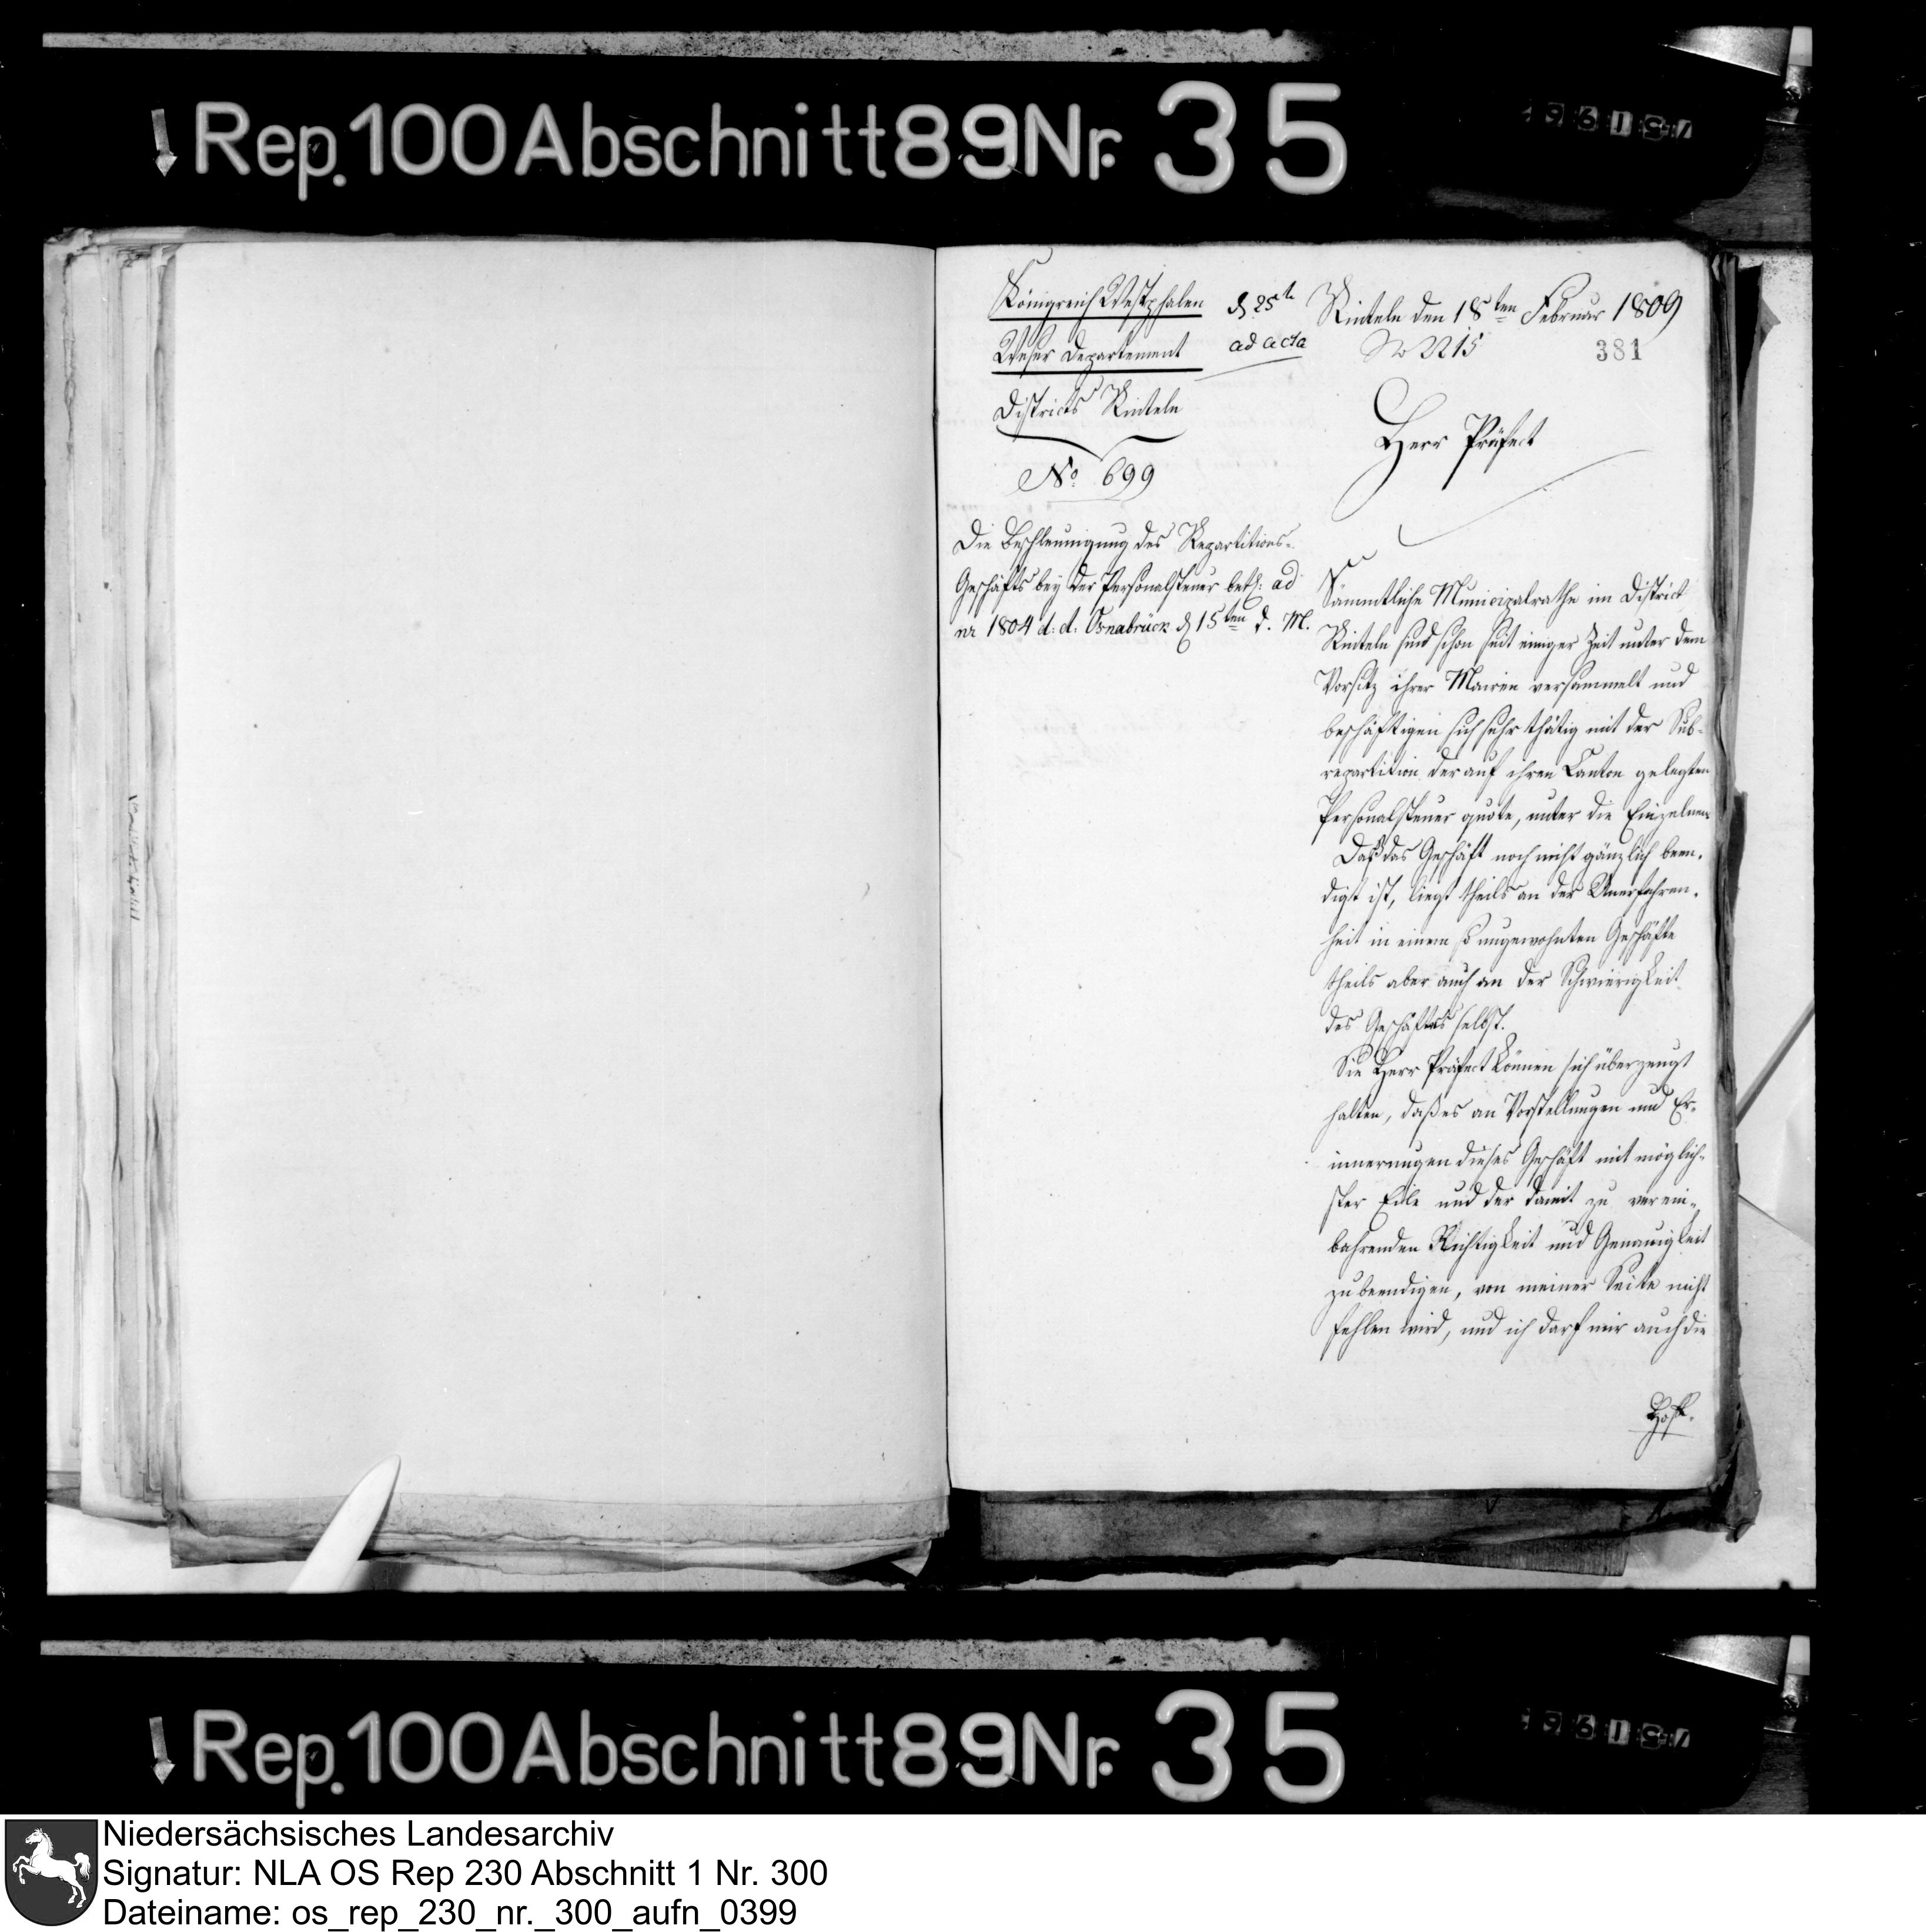 Rep. 100 Abschnitt 89 Nr. 35
Königreich Westphalen
Weser Departement
Districts Rinteln
No. 699
d 25t
ad acta
Rinteln den 18ten Februar 1809
No 2215
381
Herr Präfect
Die Beschleunigung des Repartitions-
Geschäfts bey der Personalsteuer betr: ad
nr 1804 d: d: Osnabrück d 15ten d. M.
Sämmtliche Municipalrathe im District
Rinteln sind schon seit einiger Zeit unter dem
Vorsitz ihrer Mairen versammelt und
beschäftigen sich sehr thätig mit der Sub-
repartition der auf ihren Canton gelegten
Personalsteuer quote, unter die Einzelnen
Daß das Geschäft noch nicht gänzlich been-
digt ist, liegt theils an der Unerfahren-
heit in einem so ungewohnten Geschäfte
theils aber auch an der Schwierigkeit
des Geschäftes selbst.
Sie Herr Präfect können sich überzeugt
halten, daß es an Vorstellungen und Er-
innerungen dieses Geschäft mit möglich-
ster Eile und der damit zu verein-
bahrenden Richtigkeit und Genauigkeit
zu beendigen, von meiner Seite nicht
fehlen wird, und ich darf mir auch die
Hoff-
Rep. 100 Abschnitt 89 Nr. 35
Niedersächsisches Landesarchiv
Signatur: NLA OS Rep 230 Abschnitt 1 Nr. 300
Dateiname: os_rep_230_nr._300_aufn_0399